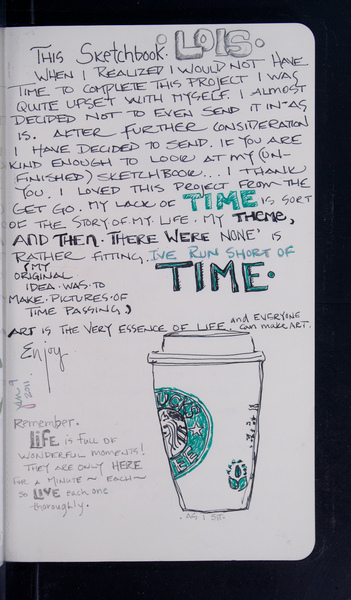 THIS Sketchbook. LOIS.
WHEN I REALIZED I WOULD NOT HAVE
TIME TO COMPLETE THIS PROJECT I WAS
QUITE UPSET WITH MYSELF. I ALMOST
DECIDED NOT TO EVEN SEND IT IN - AS
IS. AFTER FURTHER CONSIDERATION
I HAVE DECIDED TO SEND. IF YOU ARE
KIND ENOUGH TO LOOK AT MY (UN-
FINISHED) SKETCHBOOK... I THANK
YOU. I LOVED THIS PROJECT FROM THE
GET GO. MY LACK OF TIME IS SORT
OF THE STORY OF MY LIFE. MY THEME,
AND THEN THERE WERE NONE' IS
RATHER FITTING. I'VE RUN SHORT OF
TIME.
(MY
ORIGINAL
IDEA WAS TO
MAKE PICTURES OF
TIME PASSING)
ART IS THE VERY ESSENCE OF LIFE. and EVERYONE
can make ART.
Enjoy
Jan 9
2011
Remember.
LIFE is full of
wonderful moments!
THEY ARE ONLY HERE
FOR A MINUTE ~ EACH ~
so LIVE each one
thoroughly.
UCKS
EE
. AS I SIT.